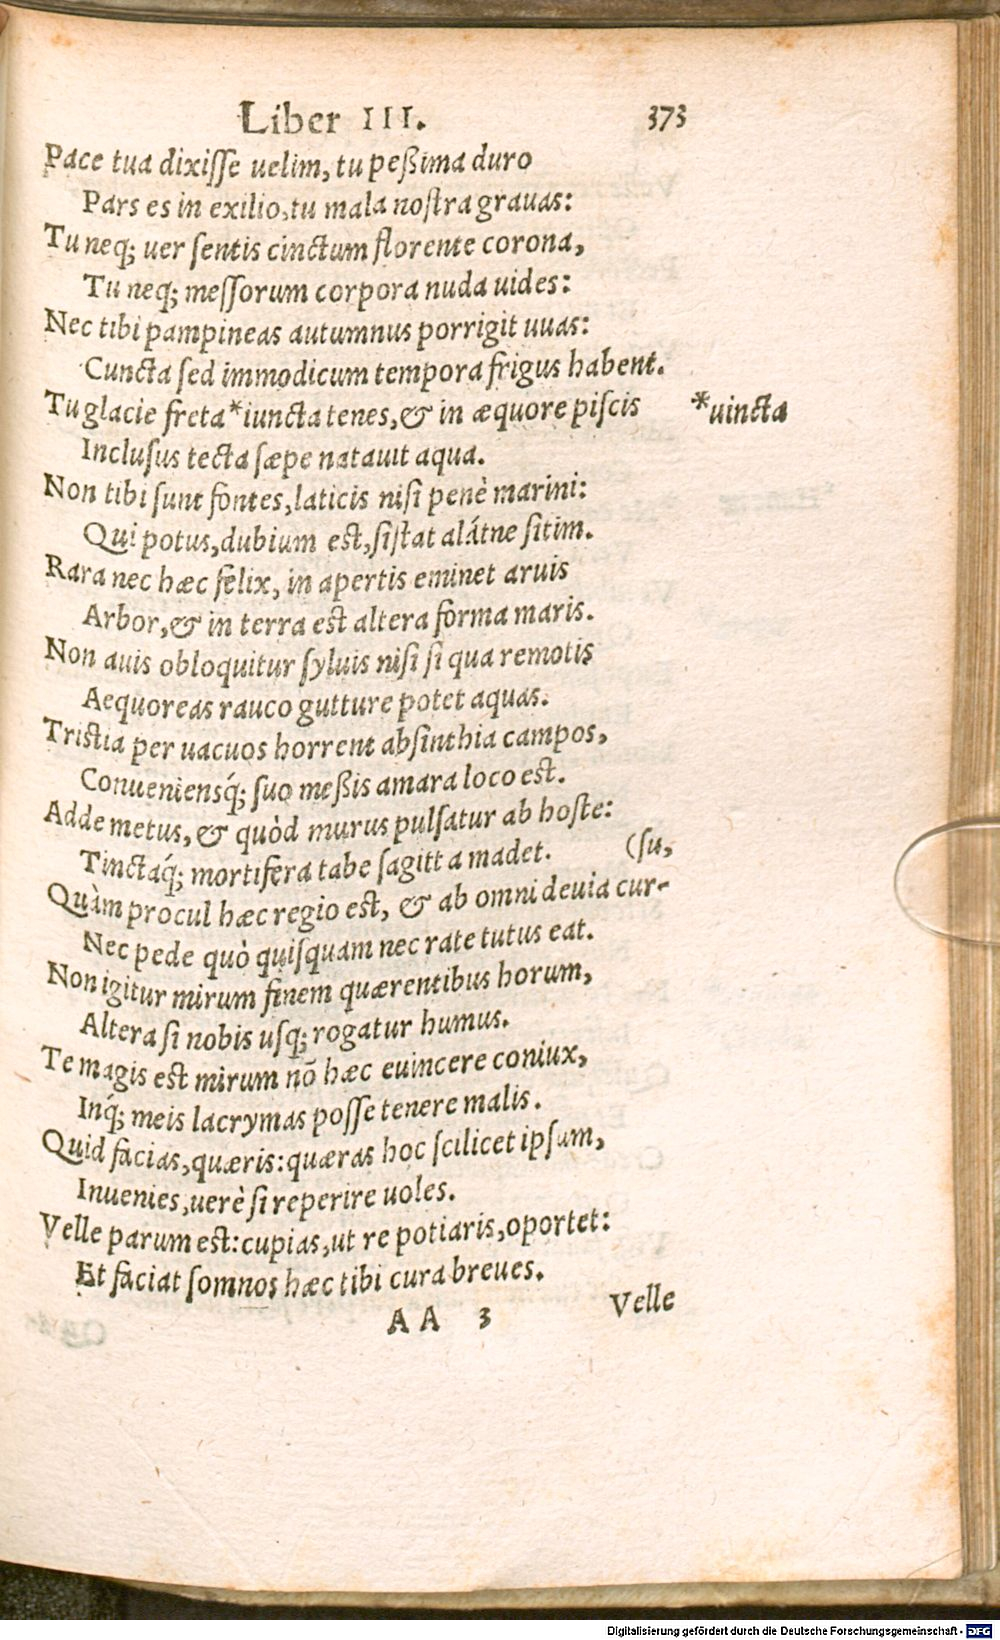 Liber III. 373
Pace tua dixiſſe uelim, tu peßima duro
Pars es in exilio, tu mala noſtra grauas:
Tu neq; uer ſentis cinctum florente corona,
Tu neq; meſſorum corpora nuda uides:
Nec tibi pampineas autumnus porrigit uuas:
Cuncta ſed immodicum tempora frigus habent.
Tu glacie freta *iuncta tenes, & in æquore piſcis *uincta
Incluſus tecta ſæpe natauit aqua.
Non tibi ſunt fontes, laticis niſi penè marini:
Qui potus, dubium est, ſiſtat alátne ſitim.
Rara nec hæc felix, in apertis eminet aruis
Arbor, & in terra est altera forma maris.
Non auis obloquitur ſyluis niſi ſi qua remotis
Aequoreas rauco gutture potet aquas.
Tristia per uacuos horrent abſinthia campos,
Conueniensq́; ſuo meßis amara loco est.
Adde metus, & quòd murus pulſatur ab hoſte:
Tinctaq́; mortifera tabe ſagitta madet. (ſu,
Quàm procul hæc regio est, & ab omni deuia cur-
Nec pede quò quiſquam nec rate tutus eat.
Non igitur mirum finem quærentibus horum,
Altera ſi nobis uſq; rogatur humus.
Te magis est mirum nõ hæc euincere coniux,
Inq́; meis lacrymas poſſe tenere malis.
Quid facias, quæris: quæras hoc ſcilicet ipſum,
Inuenies, uerè ſi reperire uoles.
Velle parum est: cupias, ut re potiaris, oportet:
Et faciat ſomnos hæc tibi cura breues.
AA 3 Velle
Digitalisierung gefördert durch die Deutsche Forschungsgemeinschaft - DFG